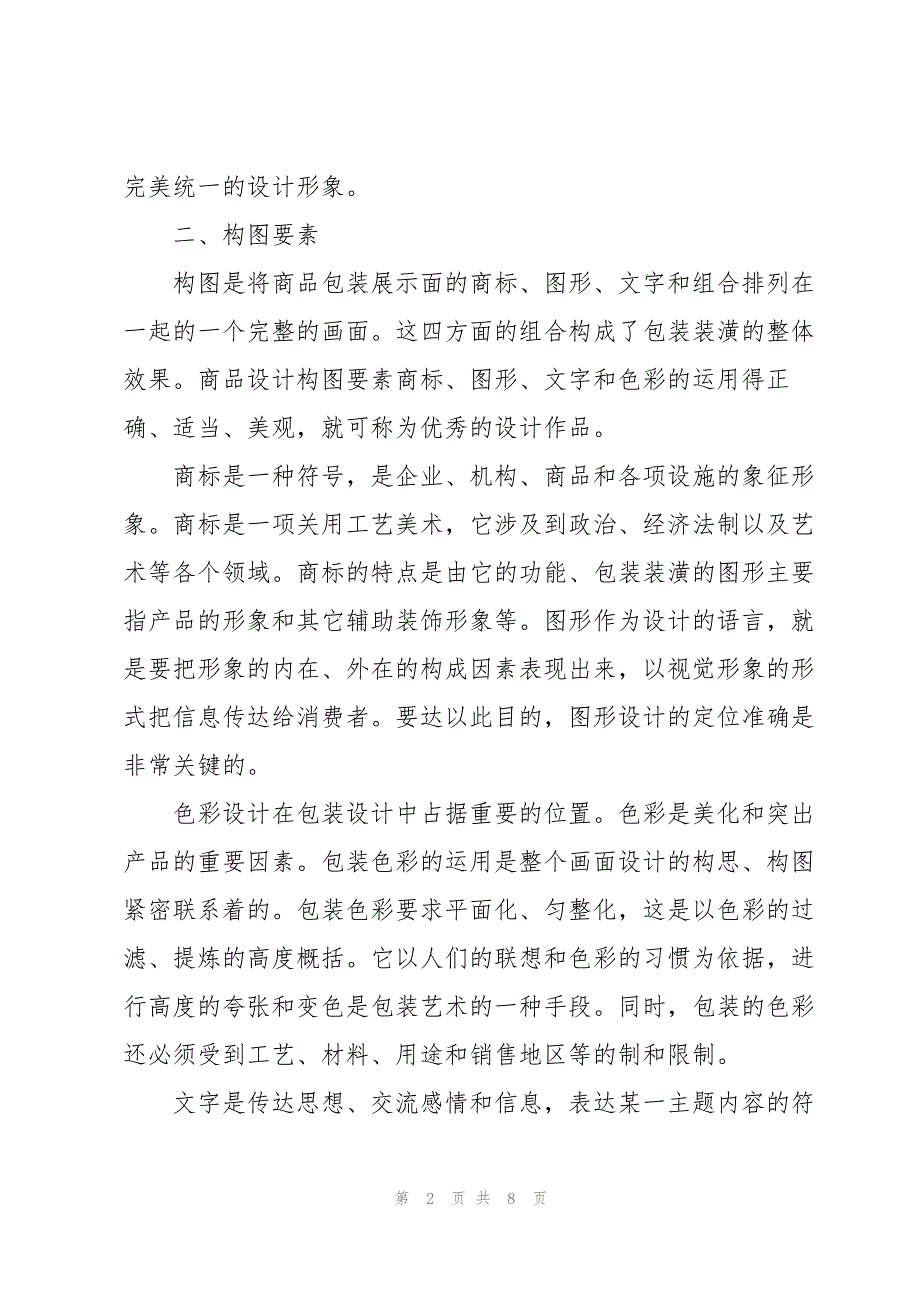 完美统一的设计形象。
二、构图要素
构图是将商品包装展示面的商标、图形、文字和组合排列在
一起的一个完整的画面。这四方面的组合构成了包装装潢的整体
效果。商品设计构图要素商标、图形、文字和色彩的运用得正
确、适当、美观，就可称为优秀的设计作品。
商标是一种符号，是企业、机构、商品和各项设施的象征形
象。商标是一项关用工艺美术，它涉及到政治、经济法制以及艺
术等各个领域。商标的特点是由它的功能、包装装潢的图形主要
指产品的形象和其它辅助装饰形象等。图形作为设计的语言，就
是要把形象的内在、外在的构成因素表现出来，以视觉形象的形
式把信息传达给消费者。要达以此目的，图形设计的定位准确是
非常关键的。
色彩设计在包装设计中占据重要的位置。色彩是美化和突出
产品的重要因素。包装色彩的运用是整个画面设计的构思、构图
紧密联系着的。包装色彩要求平面化、匀整化，这是以色彩的过
滤、提炼的高度概括。它以人们的联想和色彩的习惯为依据，进
行高度的夸张和变色是包装艺术的一种手段。同时，包装的色彩
还必须受到工艺、材料、用途和销售地区等的制和限制。
文字是传达思想、交流感情和信息，表达某一主题内容的符
第 2 页 共 8 页